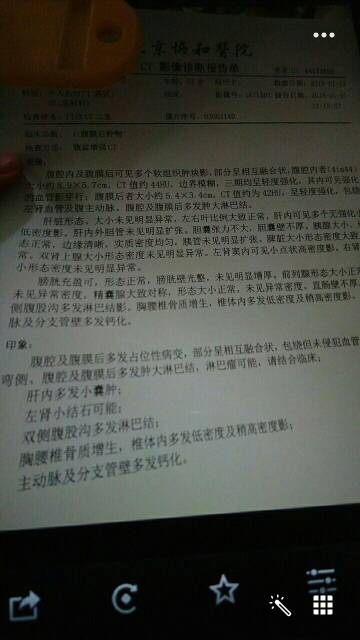 京协和医院
CT 影像诊断报告单
检查方法: 腹盆增强CT
腹腔内及腹膜后可见多个软组织肿块影,部分呈相互融合状,腹腔内者(4:m44)
大小约8.9×5.7cm, CT值约44HU, 边界模糊, 三期均呈轻度强化, 其内可见强化
的血管影穿行; 腹膜后者大小约5.4×3.4cm, CT值约为42HU, 呈轻度强化, 包绕
左肾血管及腹主动脉。腹腔及腹膜后多发肿大淋巴结。
肝脏形态、大小未见明显异常, 左右叶比例大致正常, 肝内可见多个无强化小
低密度影, 肝内外胆管未见明显扩张。胆囊张力不大, 胆囊壁不厚。胰腺大小、
态正常, 边缘清晰, 实质密度均匀, 胰管未见明显扩张。脾脏大小形态密度大致
常。双肾上腺大小形态密度未见明显异常。左肾窦内可见小点状高密度影, 右肾
小形态密度未见明显异常。
膀胱充盈可, 形态正常, 膀胱壁光整, 未见明显增厚。前列腺形态大小正
未见异常密度。精囊腺大致对称, 形态大小正常, 未见异常密度。直肠壁不厚
侧腹股沟多发淋巴结影。胸腰椎骨质增生, 椎体内多发低密度及稍高密度影。
脉及分支管壁多发钙化。
印象:
腹腔及腹膜后多发占位性病变, 部分呈相互融合状, 包绕但未侵犯血管
弯侧、腹腔及腹膜后多发肿大淋巴结, 淋巴瘤可能, 请结合临床;
肝内多发小囊肿;
左肾小结石可能;
双侧腹股沟多发淋巴结;
胸腰椎骨质增生, 椎体内多发低密度及稍高密度影;
主动脉及分支管壁多发钙化。